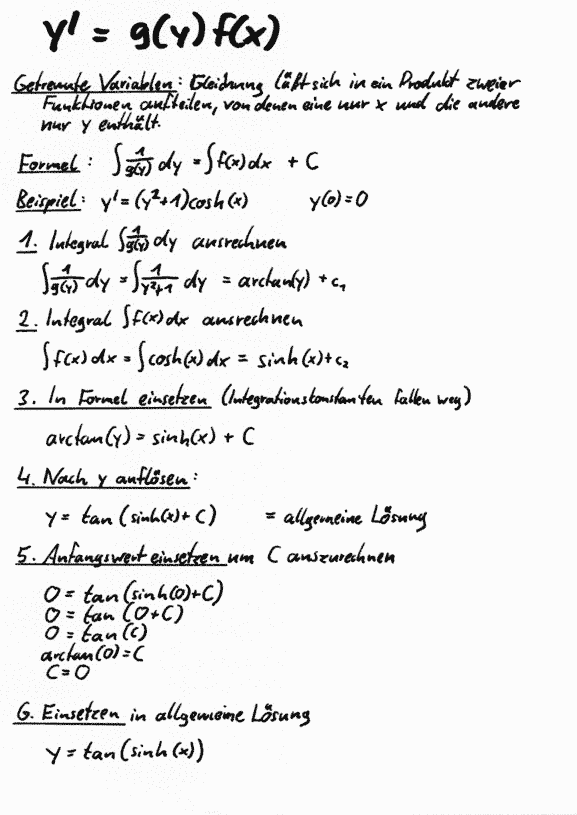 y' = g(y) f(x)
Getrennte Variablen: Gleichung läßt sich in ein Produkt zweier
Funktionen aufteilen, von denen eine nur x und die andere
nur y enthält.
Formel: ∫ 1/g(y) dy = ∫ f(x) dx + C
Beispiel: y' = (y²+1) cosh(x) y(0) = 0
1. Integral ∫ 1/g(y) dy ausrechnen
∫ 1/g(y) dy = ∫ 1/y²+1 dy = arctan(y) + c₁
2. Integral ∫ f(x) dx ausrechnen
∫ f(x) dx = ∫ cosh(x) dx = sinh(x) + c₂
3. In Formel einsetzen (Integrationskonstanten fallen weg)
arctan(y) = sinh(x) + C
4. Nach y auflösen:
y = tan (sinh(x) + C) = allgemeine Lösung
5. Anfangswert einsetzen um C auszurechnen
0 = tan (sinh(0) + C)
0 = tan (0 + C)
0 = tan (c)
arctan(0) = C
C = 0
6. Einsetzen in allgemeine Lösung
y = tan (sinh(x))